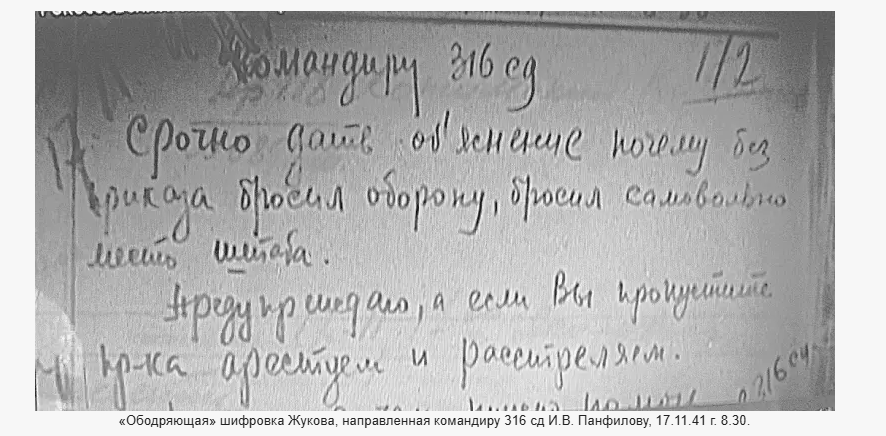 Командиру 316 сд 1/2
Срочно дать об'яснение почему без
приказа бросил оборону, бросил самовольно
место штаба.
Предупреждаю, а если Вы пропустите
пр-ка арестуем и расстреляем.
316 сд
«Ободряющая» шифровка Жукова, направленная командиру 316 сд И.В. Панфилову, 17.11.41 г. 8.30.